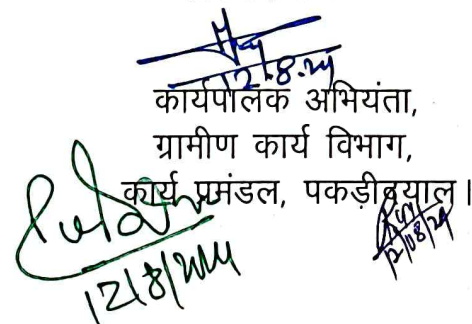 12.8.24
कार्यपालक अभियंता,
ग्रामीण कार्य विभाग,
कार्य प्रमंडल, पकड़ीदयाल।
12/8/2024
12/08/24